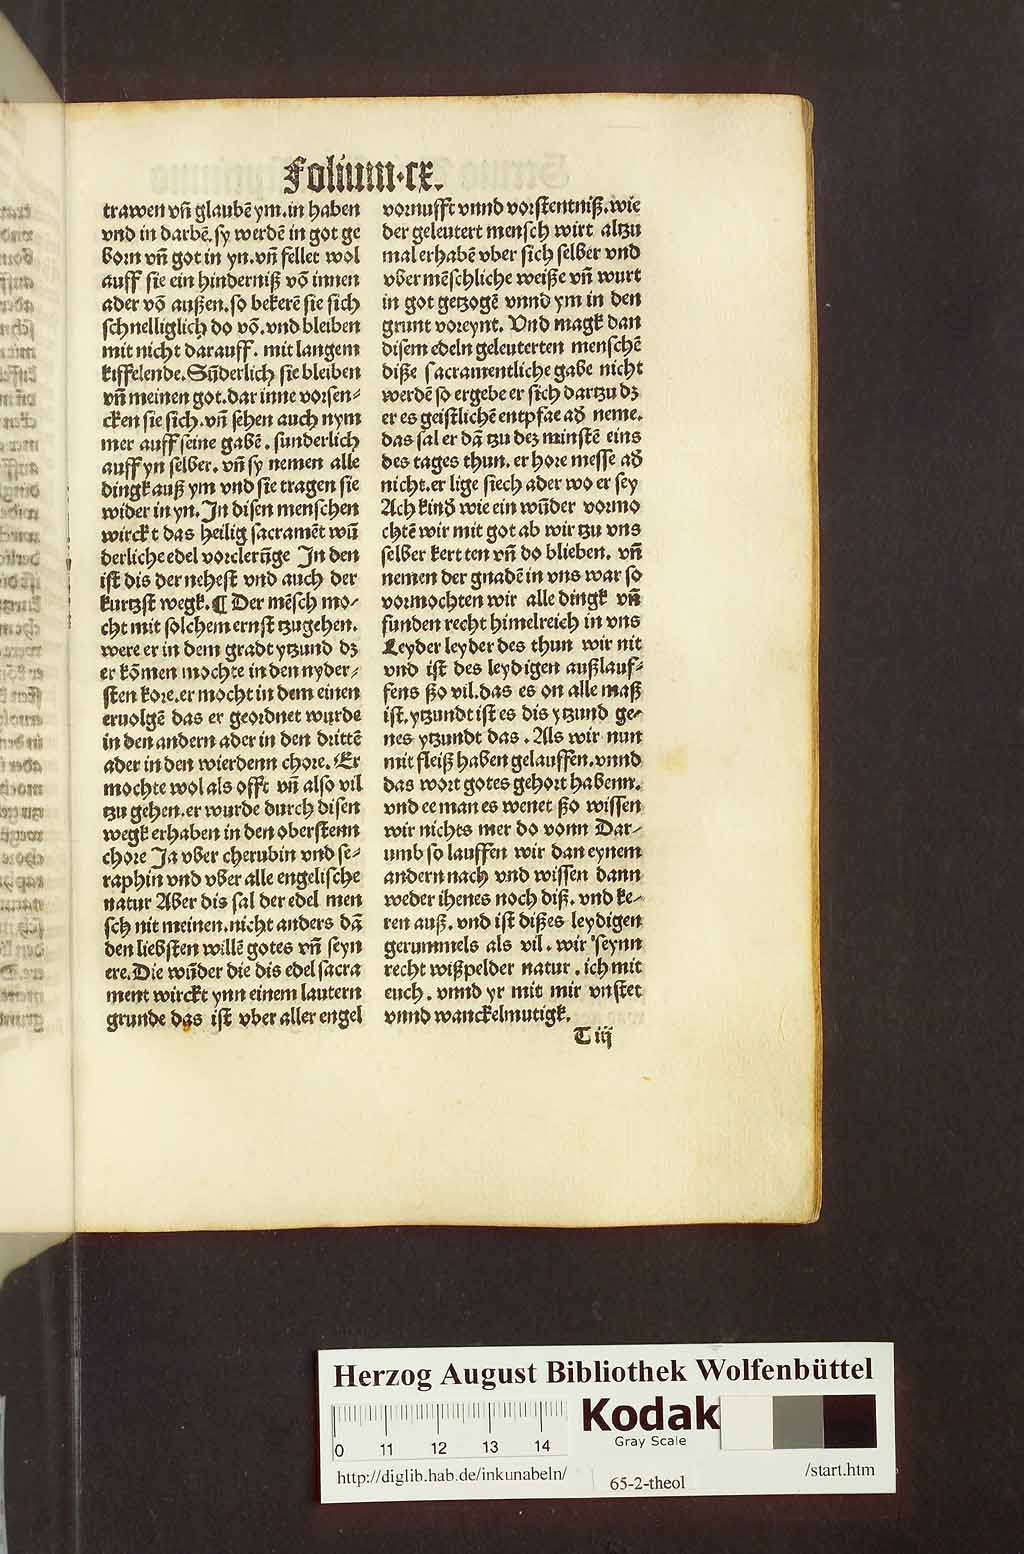 Folium·cx.
trawen vñ glaubẽ ym. in haben
vnd in darbẽ. sy werdẽ in got ge
born vñ got in yn. vñ fellet wol
auff sie ein hinderniß võ innen
ader võ außen. so bekerẽ sie sich
schnelliglich do võ. vnd bleiben
mit nicht darauff. mit langem
kiffelende. Sũderlich sie bleiben
vñ meinen got. dar inne vorsen-
cken sie sich. vñ sehen auch nym
mer auff seine gabẽ. sunderlich
auff yn selber. vñ sy nemen alle
dingk auß ym vnd sie tragen sie
wider in yn. In disen menschen
wirckt das heilig sacramẽt wũ
derliche edel vorclerũge In den
ist dis der nehest vnd auch der
kurtzst wegk. ¶ Der mẽsch mo-
cht mit solchem ernst tzugehen.
were er in dem gradt ytzund dz
er kõmen mochte in den nyder-
sten kore. er mocht in dem einen
eruolgẽ das er geordnet wurde
in den andern ader in den drittẽ
ader in den wierdenn chore. Er
mochte wol als offt vñ also vil
tzu gehen. er wurde durch disen
wegk erhaben in den oberstenn
chore Ja vber cherubin vnd se-
raphin vnd vber alle engelische
natur Aber dis sal der edel men
sch nit meinen. nicht anders dã
den liebsten willẽ gotes vñ seyn
ere. Die wũder die dis edel sacra
ment wirckt ynn einem lautern
grunde das ist vber aller engel
vornufft vnnd vorstentniß. wie
der geleutert mensch wirt altzu
mal erhabẽ vber sich selber vnd
vber mẽschliche weiße vñ wurt
in got getzogẽ vnnd ym in den
grunt voreynt. Vnd magk dan
disem edeln geleuterten menschẽ
diße sacramentliche gabe nicht
werdẽ so ergebe er sich dartzu dz
er es geistlichẽ entpfae ad̃ neme.
das sal er dã tzu dez minstẽ eins
des tages thun. er hore messe ad̃
nicht. er lige siech ader wo er sey
Ach kind̃ wie ein wũder vormo
chtẽ wir mit got ab wir tzu vns
selber kert ten vñ do blieben. vñ
nemen der gnadẽ in vns war so
vormochten wir alle dingk vñ
funden recht himelreich in vns
Leyder leyder des thun wir nit
vnd ist des leydigen außlauf-
fens ßo vil. das es on alle maß
ist. ytzundt ist es dis ytzund ge-
nes ytzundt das. Als wir nun
mit fleiß haben gelauffen. vnnd
das wort gotes gehort habenn.
vnd ee man es wenet ßo wissen
wir nichts mer do vonn Dar-
umb so lauffen wir dan eynem
andern nach vnd wissen dann
weder ihenes noch diß. vnd ke-
ren auß. vnd ist dißes leydigen
gerummels als vil. wir seynn
recht wißpelder natur. ich mit
euch. vnnd yr mit mir vnstet
vnnd wanckelmutigk.
T iij
Herzog August Bibliothek Wolfenbüttel
Kodak
Gray Scale
0 11 12 13 14
http://diglib.hab.de/inkunabeln/
65-2-theol
/start.htm